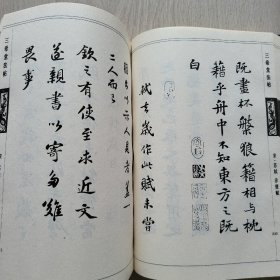 三希堂法帖
既盡杯槃狼籍相與枕
籍乎舟中不知東方之既
白
軾去歲作此賦未嘗
輕出以示人見者蓋一
二人而已
欽之有使至求近文
遂親書以寄多難
畏事
三希堂法帖